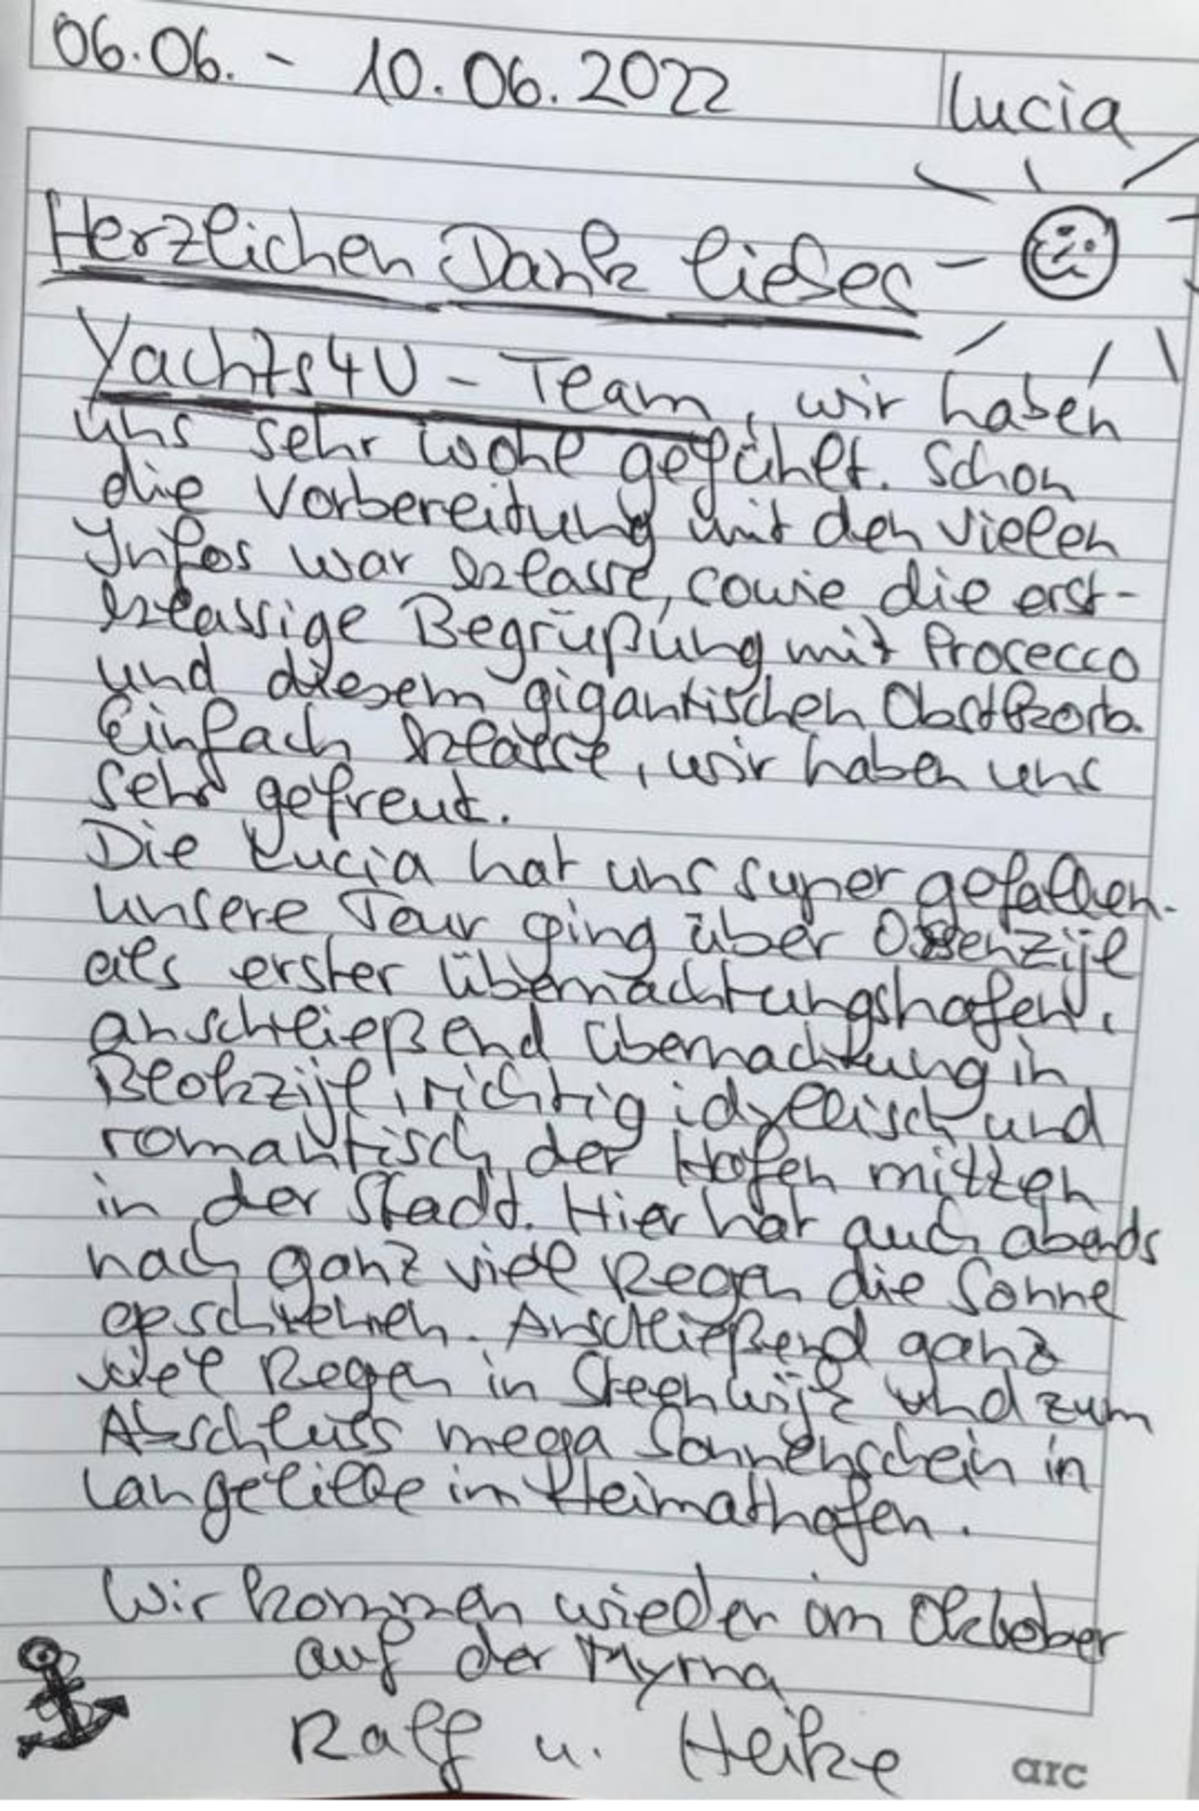 06.06. - 10.06.2022 Lucia
Herzlichen Dank liebes -
Yachts4U - Team, wir haben
uns sehr wohl gefühlt. Schon
die Vorbereitung mit den vielen
Infos war klasse, sowie die erst-
klassige Begrüßung mit Prosecco
und diesem gigantischen Obstkorb.
Einfach klasse, wir haben uns
sehr gefreut.
Die Lucia hat uns super gefallen.
Unsere Tour ging über Ossenzijl
als erster Übernachtungshafen,
anschließend Übernachtung in
Blokzijl, richtig idyllisch und
romantisch, der Hafen mitten
in der Stadt. Hier hat auch abends
nach ganz viel Regen die Sonne
geschienen. Anschließend ganz
viel Regen in Steenwijk und zum
Abschluss mega Sonnenschein in
Langelille im Heimathafen.
Wir kommen wieder im Oktober
auf der Myrna
Ralf u. Heike
arc